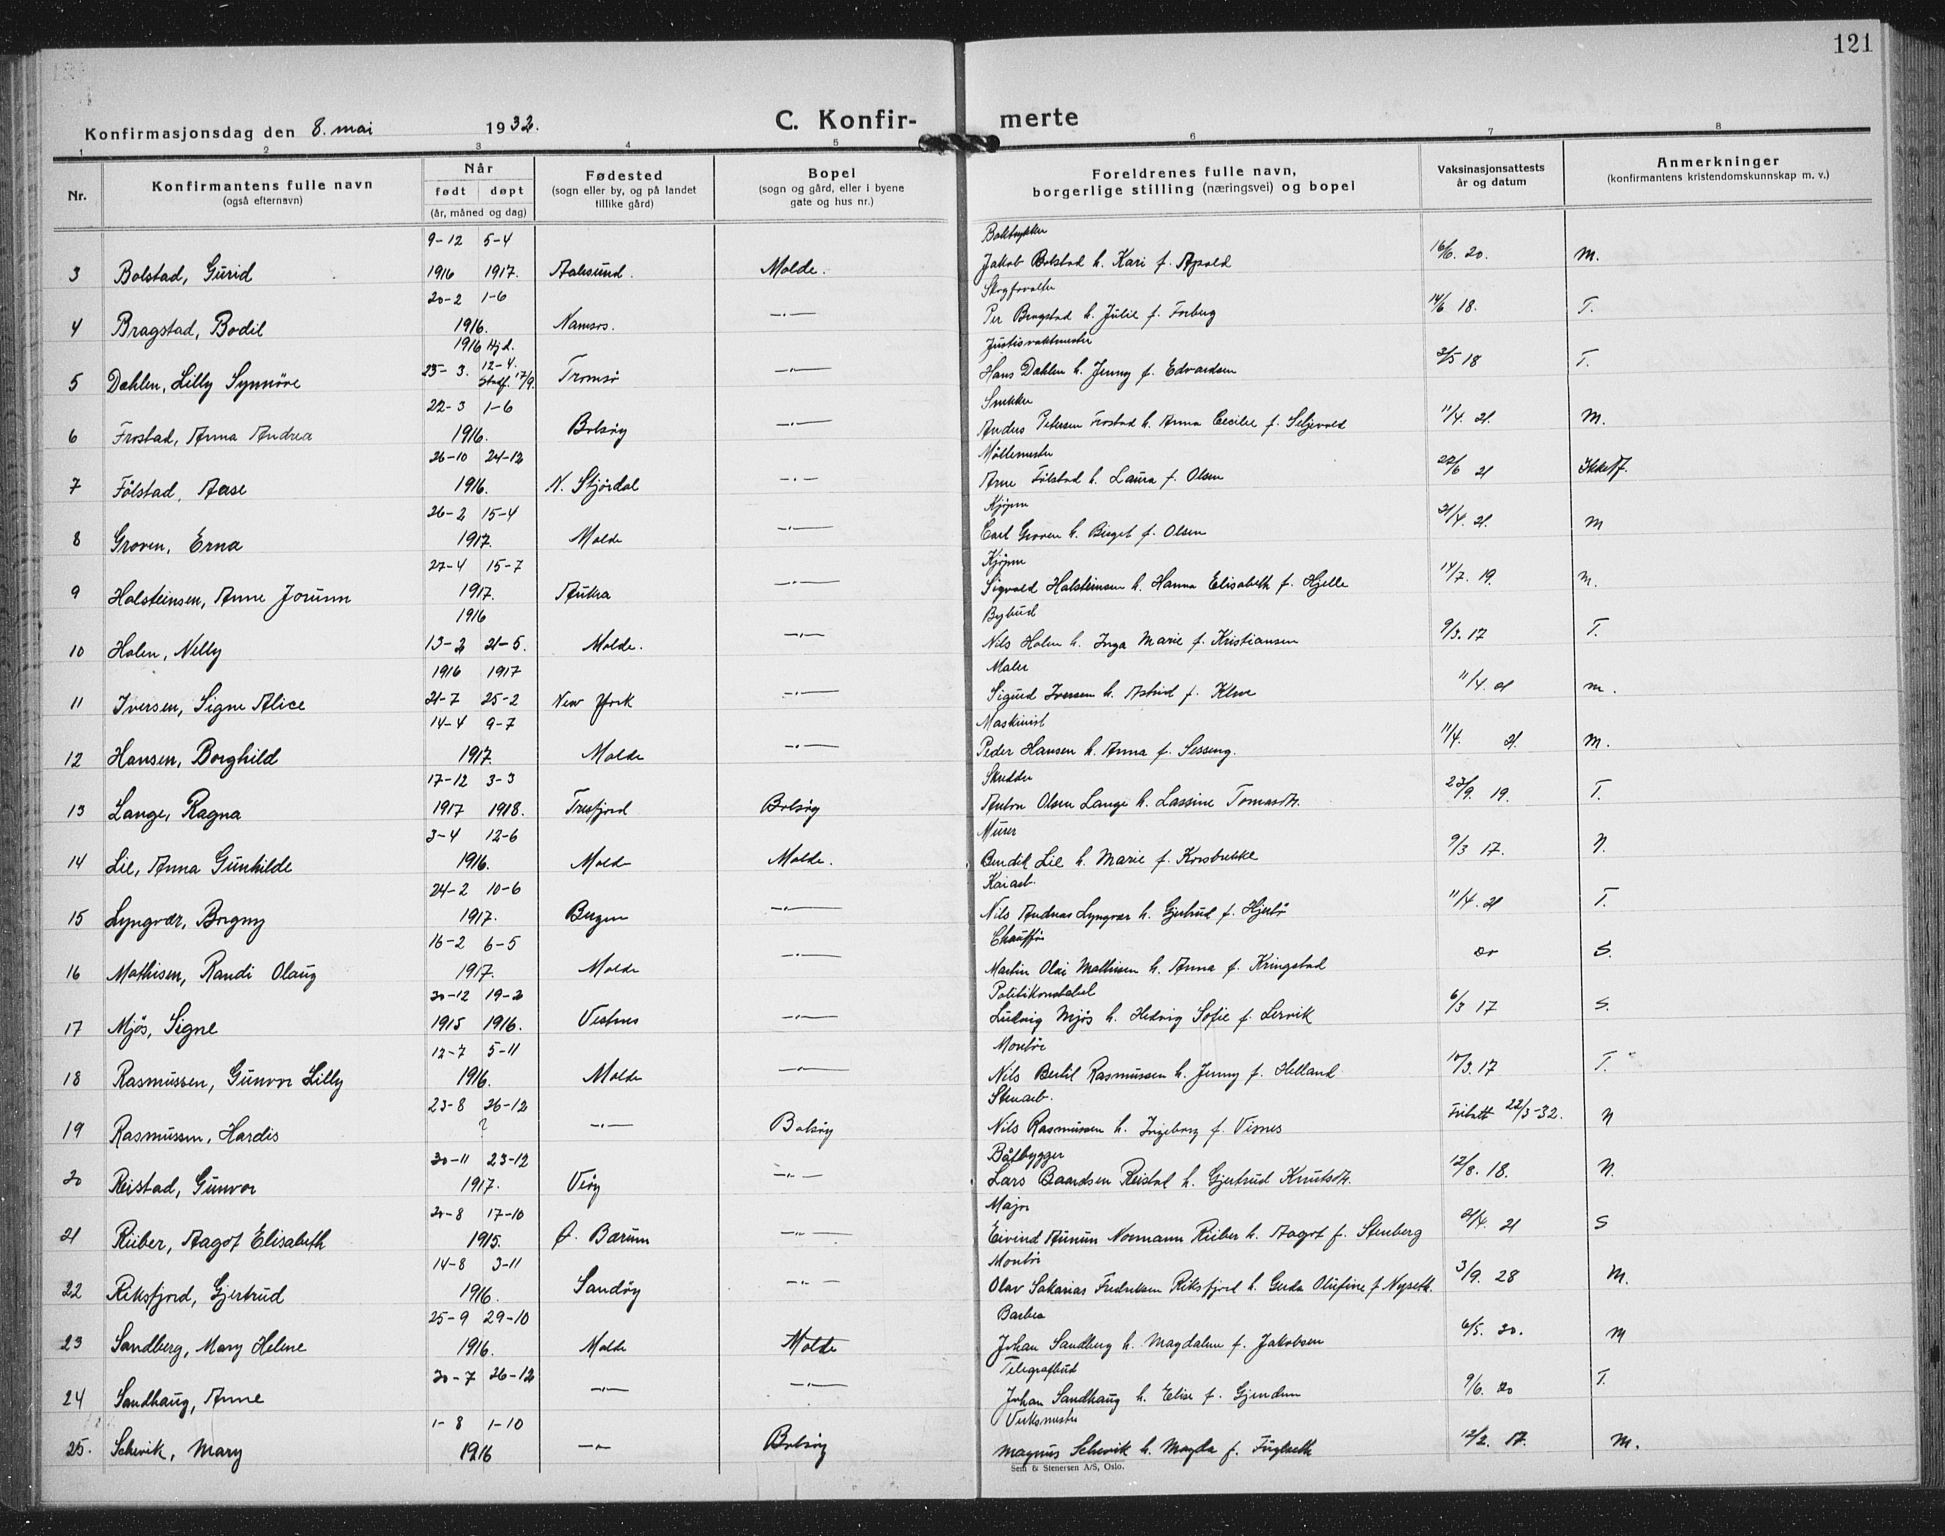 121
Konfirmasjonsdag den 8. mai 1932. C. Konfir- merte
1 2 3 4 5 6 7 8
Nr. Konfirmantens fulle navn (også efternavn) Når født døpt (år, måned og dag) Fødested (sogn eller by, og på landet tillike gård) Bopel (sogn og gård, eller i byene gate og hus nr.) Foreldrenes fulle navn, borgerlige stilling (næringsvei) og bopel Vaksinasjonsattests år og datum Anmerkninger (konfirmantens kristendomskunnskap m. v.)
9-12 5-4 Boktrykker
3 Bolstad, Gurid 1916 1917. Aalesund. Molde. Jakob Bolstad h. Kari f. Apold 16/6. 20. M.
20-2 1-6 Skogforvalter
4 Bragstad, Bodil 1916. Namsos. —"— Per Bragstad h. Julie f. Forberg 14/6 18. T.
1916 Hjd. Justisvaktmester
5 Dahlen, Lilly Synnöve 23-3. 12-4. Stadf. 17/9. Tromsø —"— Hans Dahlen h. Jenny f. Edvardsen 2/5 18 T.
22-3 1-6 Snekker
6 Frostad, Anna Andrea 1916. Bolsøy —"— Anders Petersen Frostad h. Anna Cecilie f. Seljevold 11/4 21. M.
26-10 24-12 Möllemester
7 Fölstad, Aase 1916. N. Stjördal —"— Arne Fölstad h. Laura f. Olsen 22/6 21 Ikke M.
26-2 15-4 Kjøpm
8 Groven, Erna 1917. Molde —"— Carl Groven h. Birget f. Olsen 21/4. 21. M
27-4 15-7 Kjøpm
9 Holsteinsen, Anne Jorunn 1917. Aukra —"— Sigvald Holsteinsen h. Hanna Elisabeth f. Hjelle 14/7. 19. M.
1916 Bybud
10 Holen, Nelly 13-2 21-5. Molde. —"— Nils Holen h. Inga Marie f. Kristiansen 9/3. 17 T.
1916 1917 Maler
11 Iversen, Signe Alice 21-7 25-2 New York —"— Sigurd Iversen h. Astrid f. Klve 11/4. 21 M.
14-4 9-7 Maskinist
12 Hansen, Borghild 1917. Molde —"— Peder Hansen h. Anna f. Sesseng. 11/4. 21. M.
17-12 3-3 Skredder
13 Lange, Ragna 1917 1918. Tresfjord Bolsøy Anton Olsen Lange h. Lassine Tomasdtr. 23/9. 19. T.
3-4 12-6 Murer
14 Lie, Anna Gunhilde 1916. Molde Molde. Bendik Lie h. Marie f. Korsbrekke 9/3 17. N.
24-2 10-6 Kaiarb.
15 Lyngvær, Borgny 1917. Bergen —"— Nils Andreas Lyngvær h. Gjertrud f. Hjertø 11/4. 21 T.
16-2 6-5 Chauffør
16 Mathisen, Randi Olaug 1917. Molde —"— Martin Olai Mathisen h. Anna f. Kringstad do S.
30-12 19-2 Politikonstabel
17 Mjøs, Signe 1915 1916. Vestnes —"— Ludvig Mjøs h. Hedvig Sofie f. Lervik 6/3 17 S.
12-7 5-11 Montør
18 Rasmussen, Gunvor Lilly 1916. Molde —"— Nils Bertil Rasmussen h. Jenny f. Helland 12/3. 17 T.
23-8 26-12 Stenarb.
19 Rasmussen, Hardis ? —"— Bolsøy Nils Rasmussen h. Ingeborg f. Visnes Fribatt 22/3-32. N
30-11 23-12 Båtbygger
20 Reistad, Gunvor 1917. Veøy —"— Lars Baardsen Reistad h. Gjertrud Knutsdtr. 12/8. 18. N.
20-8 17-10 Major
21 Rieber, Aagot Elisabeth 1915. Ö. Bærum —"— Eivind Aunun Normann Rieber h. Aagot f. Stenberg 21/4. 21 S
14-8 3-11 Montör
22 Riksfjord, Gjertrud 1916. Sandøy —"— Olav Sakarias Fredriksen Riksfjord h. Gerda Olufine f. Nyseth. 3/9. 28 M.
25-9 29-10 Barber
23 Sandberg, Mary Helene 1916. Molde Molde Johan Sandberg h. Magdalene f. Jakobsen 6/5. 30. M
30-7 26-12 Telegrafbud
24 Sandhaug, Anne —"— —"— Johan Sandhaug h. Elise f. Gjendem 9/6. 20 T.
1-8 1-10 Verksmester
25. Schevik, Mary 1916 —"— Bolsøy Magnus Schevik h. Magda f. Fuglseth 12/2. 17. M.
Sem & Stenersen A/S, Oslo.